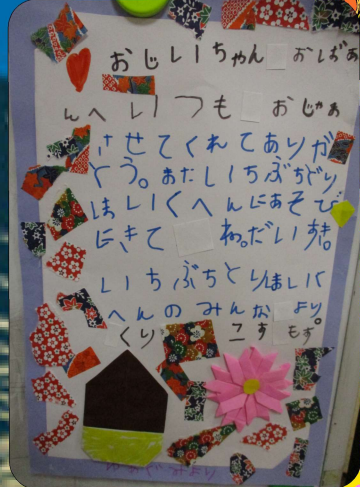 おじいちゃん おばあ
んへ いつも おじゃあ
させてくれてありが
とう。あたしいちぶちどり
ほいくへんにあそび
にきて ね。だいすき。
いちぶちとりほいく
へんのみんな より
くり こすもす。